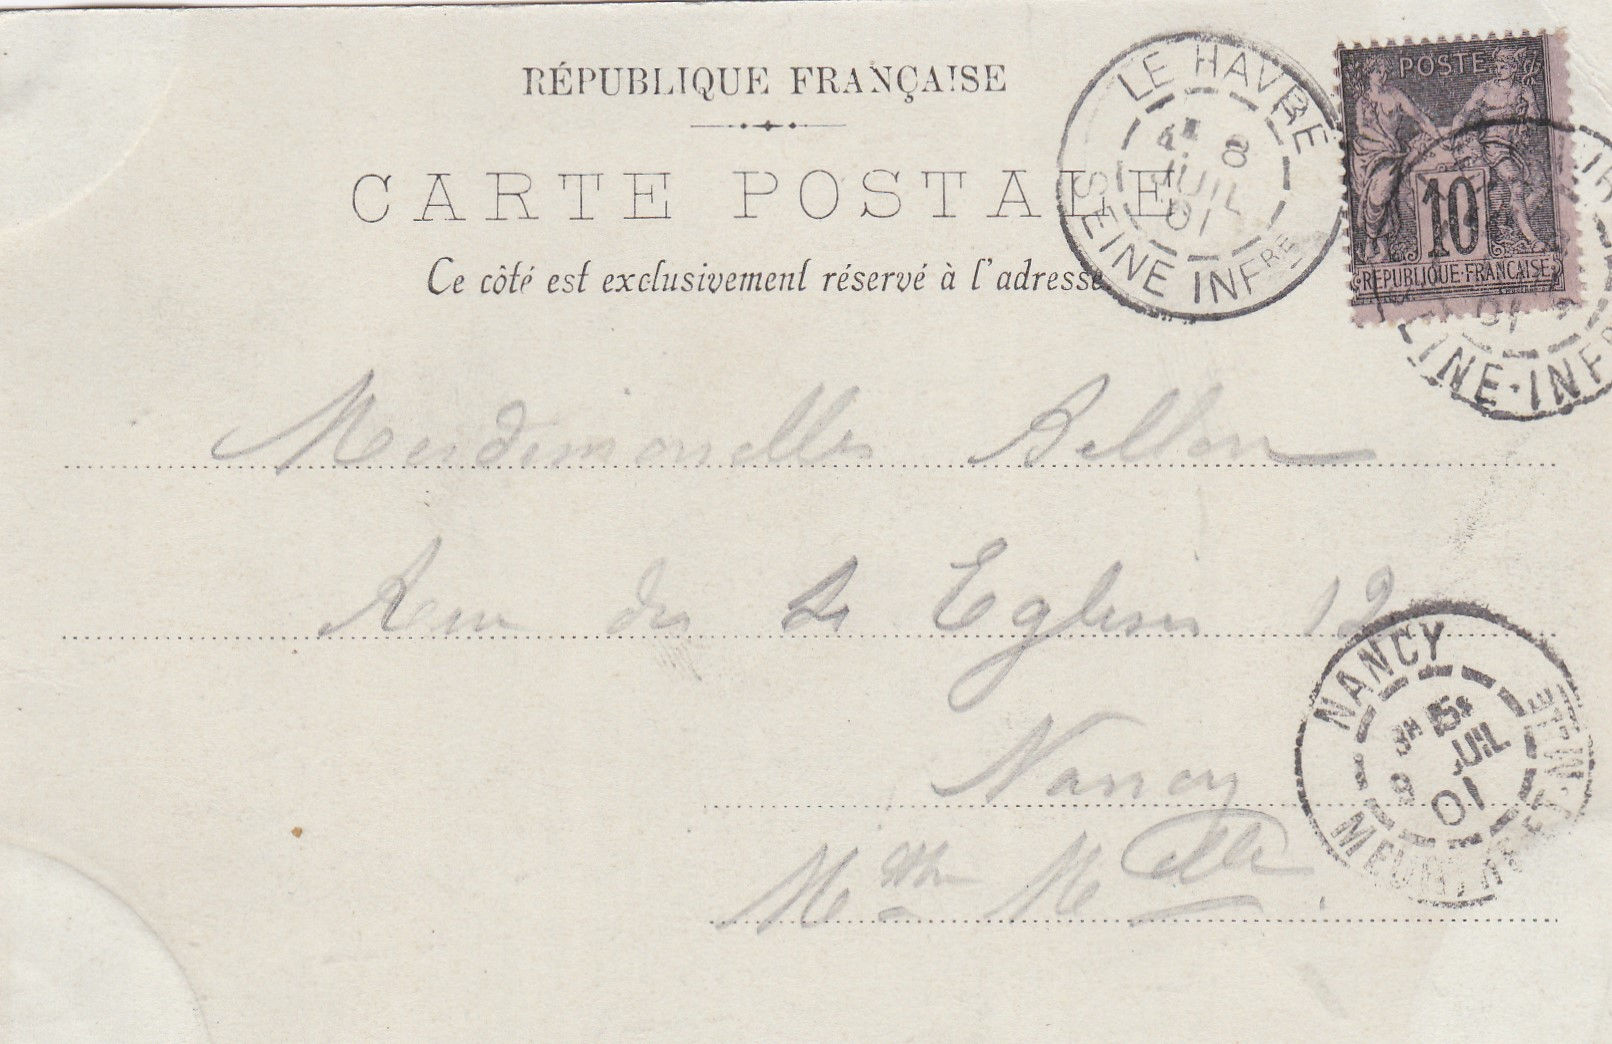 RÉPUBLIQUE FRANÇAISE
CARTE POSTALE
Ce côté est exclusivement réservé à l'adresse
LE HAVRE
8
JUIL
01
SEINE INFRE
POSTE
10
REPUBLIQUE FRANÇAISE
01
INE-INF
Mesdemoiselles Bellon
Rue des 4 Eglises 12
Nancy
Mthe Melle
NANCY
3H 15
9 JUIL
01
MEURTHE-ET-MLLE